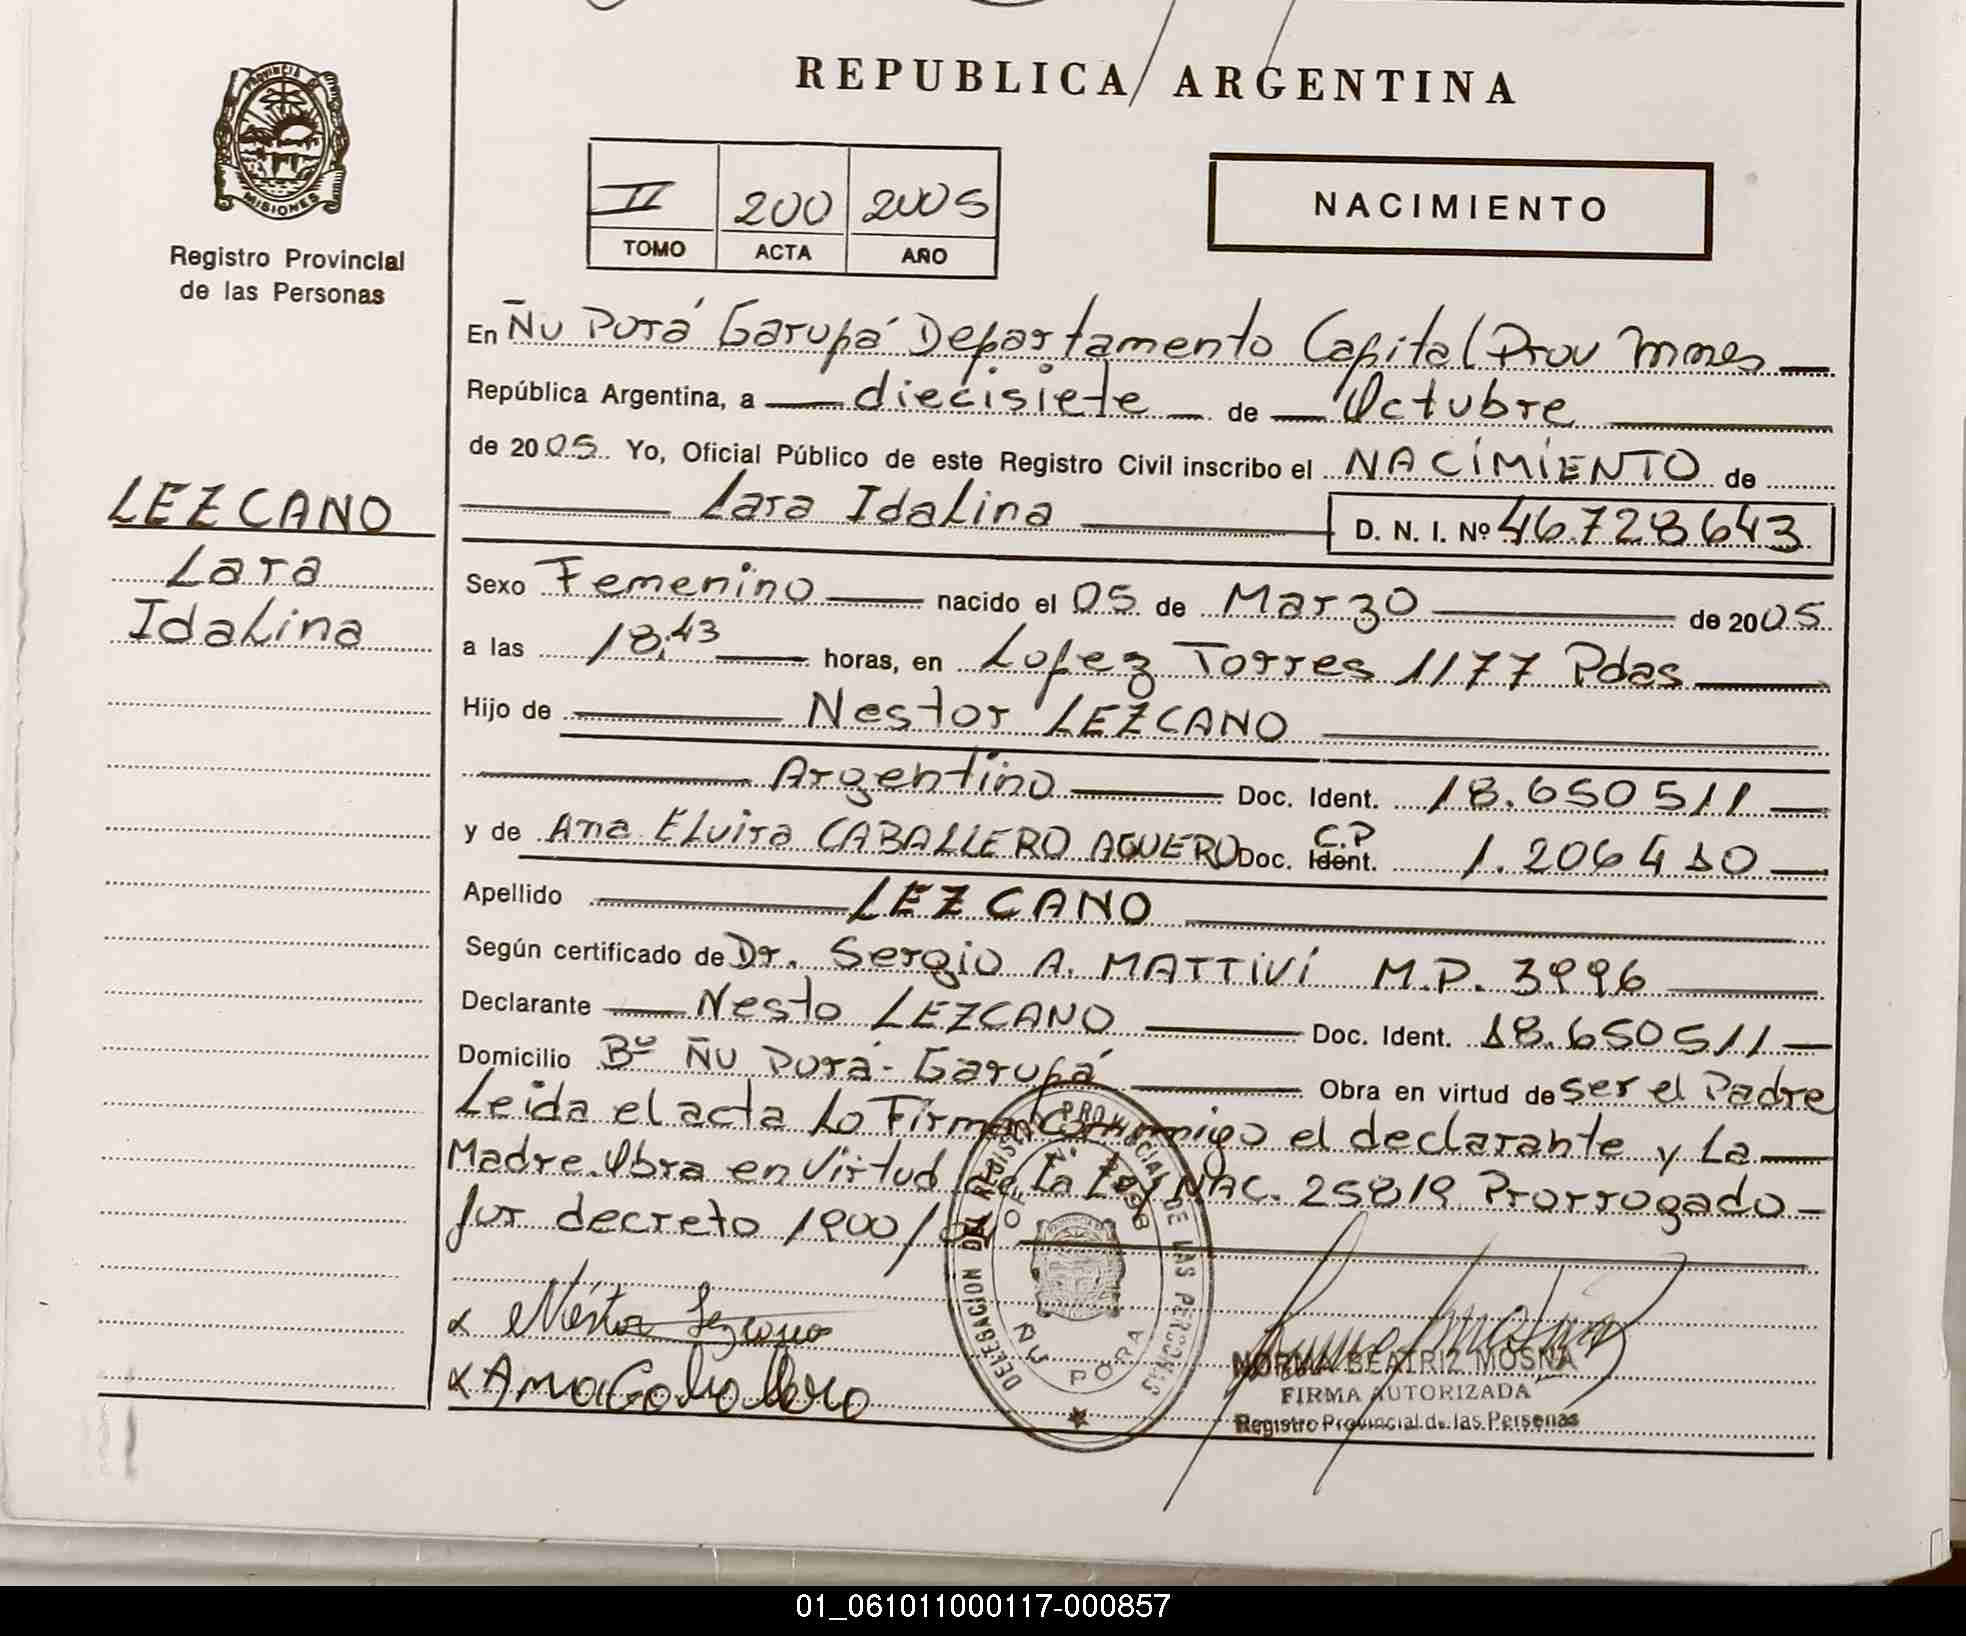 PROVINCIA
MISIONES
Registro Provincial
de las Personas
REPUBLICA ARGENTINA
II 200 2005
TOMO ACTA AÑO
NACIMIENTO
En Ñu Porá Garupá Departamento Capital Prov Mnes
República Argentina, a diecisiete de Octubre
de 2005 Yo, Oficial Público de este Registro Civil inscribo el NACIMIENTO de
Lara Idalina D. N. I. Nº 46.728643
LEZCANO
Lara
Idalina
Sexo Femenino nacido el 05 de Marzo de 2005
a las 18,43 horas, en Lopez Torres 1177 Pdas
Hijo de Nestor LEZCANO
Argentino Doc. Ident. 18.650511
y de Ana Elvira CABALLERO AGUERO Doc. Ident. C.P 1.206410
Apellido LEZCANO
Según certificado de Dr. Sergio A. MATTIVI M.P. 3996
Declarante Nesto LEZCANO Doc. Ident. 18.650511
Domicilio Bº Ñu Porá - Garupá Obra en virtud de ser el Padre
Leida el acta Lo Firman Conmigo el declarante y La
Madre. Obra en Virtud de La Ley NAC. 25819 Prorrogado
por decreto 1900/
x Néstor Lezcano
x Ana Caballero
DELEGACION DEL REGISTRO PROVINCIAL DE LAS PERSONAS
ÑU PORA
NORMA BEATRIZ MOSNA
FIRMA AUTORIZADA
Registro Provincial de las Personas
01_061011000117-000857